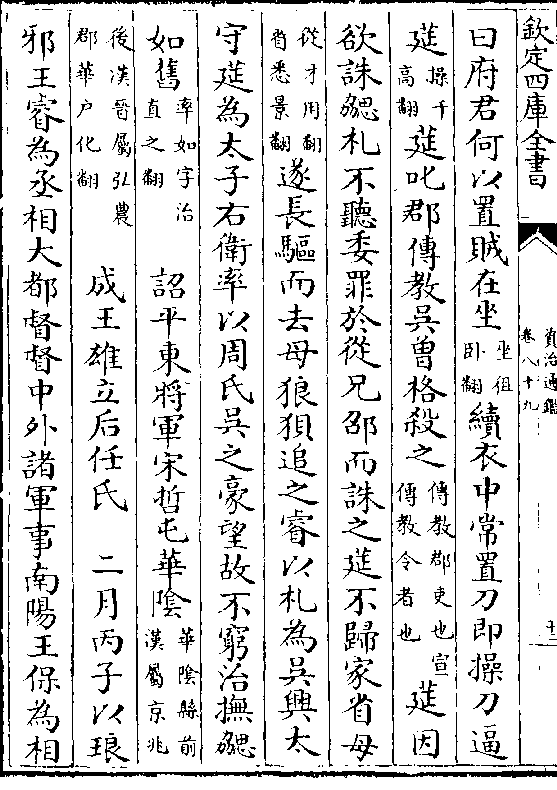 欽定四庫全書
資治通鑑
卷八十九
曰府君何以置賊在坐坐徂卧翻續衣中常置刀即操刀逼
莚操千高翻莚叱郡傳教吳曽格殺之傳教郡吏也宣傳教令者也莚因
欲誅勰札不聽委罪於從兄邵而誅之莚不歸家省母
從才用翻省悉景翻遂長驅而去母狼狽追之睿以札為吳興太
守莚為太子右衛率以周氏吳之豪望故不窮治撫勰
如舊率如字治直之翻 詔平東將軍宋哲屯華陰華陰縣前漢屬京兆
後漢晉屬弘農郡華户化翻 成王雄立后任氏 二月丙子以琅
邪王睿為丞相大都督督中外諸軍事南陽王保為相